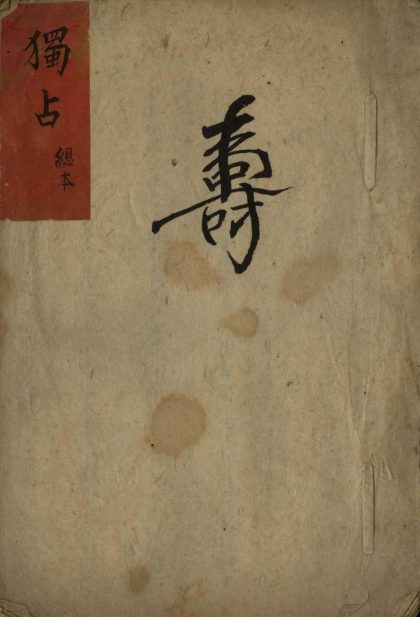 獨占
總本
壽